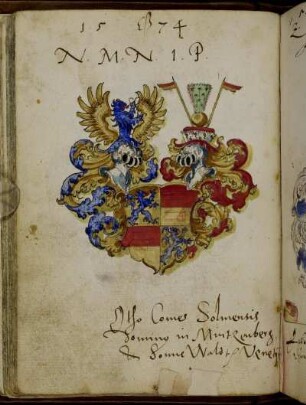 15 74
N. M. N. I. P.
Otho Comes Solmensis
Dominus in Mintzenberg
& Sonne Wald